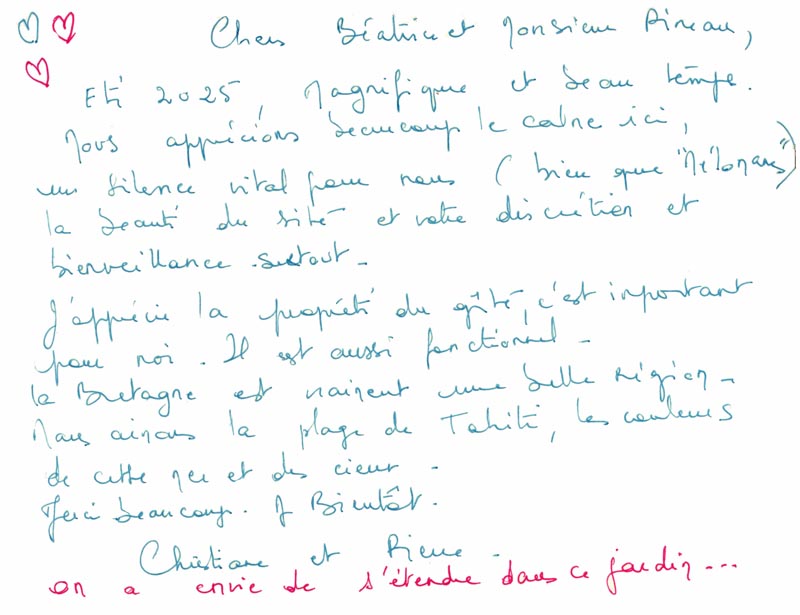 Chers Béatrice et Monsieur Pineau,
Eté 2025, Magnifique et beau temps.
Nous apprécions beaucoup le calme ici,
un silence vital pour nous (bien que "Mélomanes")
la beauté du site et votre discrétion et
bienveillance surtout.
J'apprécie la propreté du gîte, c'est important
pour moi. Il est aussi fonctionnel.
La Bretagne est vraiment une belle région.
Nous aimons la plage de Tahiti, les couleurs
de cette mer et des cieux.
Merci beaucoup. A Bientôt.
Christiane et Pierre.
on a envie de s'étendre dans ce jardin...